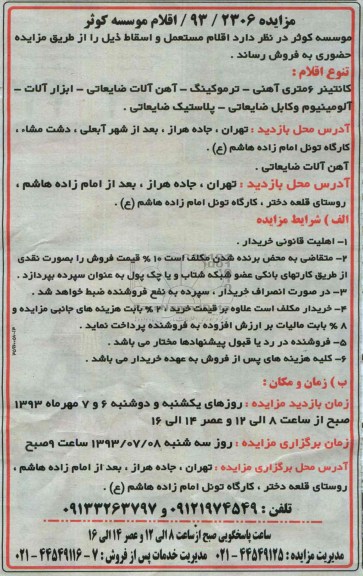 مزایده ۲۳۰۶ / ۹۳ / اقلام موسسه کوثر
موسسه کوثر در نظر دارد اقلام مستعمل و اسقاط ذیل را از طریق مزایده
حضوری به فروش رساند .
تنوع اقلام :
کانتینر ۶متری آهنی - ترموکینگ - آهن آلات ضایعاتی - ابزار آلات -
آلومینیوم وکابل ضایعاتی - پلاستیک ضایعاتی .
آدرس محل بازدید : تهران ، جاده هراز ، بعد از شهر آبعلی ، دشت مشاء ،
کارگاه تونل امام زاده هاشم (ع) .
آهن آلات ضایعاتی .
آدرس محل بازدید : تهران ، جاده هراز ، بعد از امام زاده هاشم ،
روستای قلعه دختر ، کارگاه تونل امام زاده هاشم (ع) .
الف ) شرایط مزایده
۱- اهلیت قانونی خریدار .
۲- متقاضی به محض برنده شدن مکلف است ۱۰ % قیمت فروش را بصورت نقدی
از طریق کارتهای بانکی عضو شبکه شتاب و یا چک پول به عنوان سپرده بپردازد .
۳- در صورت انصراف خریدار ، سپرده به نفع فروشنده ضبط خواهد شد .
۴- خریدار مکلف است علاوه بر قیمت خرید ، ۲ % بابت هزینه های جانبی مزایده و
۸ % بابت مالیات بر ارزش افزوده به فروشنده پرداخت نماید .
۵- فروشنده در رد یا قبول پیشنهادها مختار می باشد .
۶- کلیه هزینه های پس از فروش به عهده خریدار می باشد .
ب ) زمان و مکان :
زمان بازدید مزایده : روزهای یکشنبه و دوشنبه ۶ و ۷ مهرماه ۱۳۹۳
صبح از ساعت ۸ الی ۱۲ و عصر ۱۴ الی ۱۶
زمان برگزاری مزایده : روز سه شنبه ۱۳۹۳/۰۷/۰۸ ساعت ۹صبح
آدرس محل برگزاری مزایده : تهران ، جاده هراز ، بعد از امام زاده هاشم ،
روستای قلعه دختر ، کارگاه تونل امام زاده هاشم (ع) .
تلفن : ۰۹۱۲۱۹۷۴۵۴۹ و ۰۹۱۳۳۲۶۳۷۹۷
ساعت پاسخگویی صبح از ساعت ۸ الی ۱۲ و عصر ۱۴ الی ۱۶
مدیریت مزایده : ۴۴۵۴۹۱۲۵ - ۰۲۱ مدیریت خدمات پس از فروش : ۷ - ۴۴۵۴۹۱۱۶ - ۰۲۱